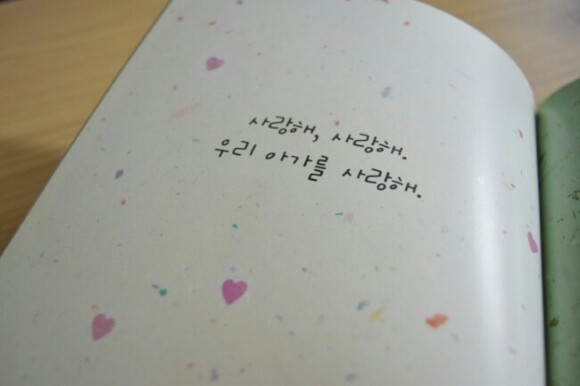 사랑해, 사랑해.
우리 아가를 사랑해.